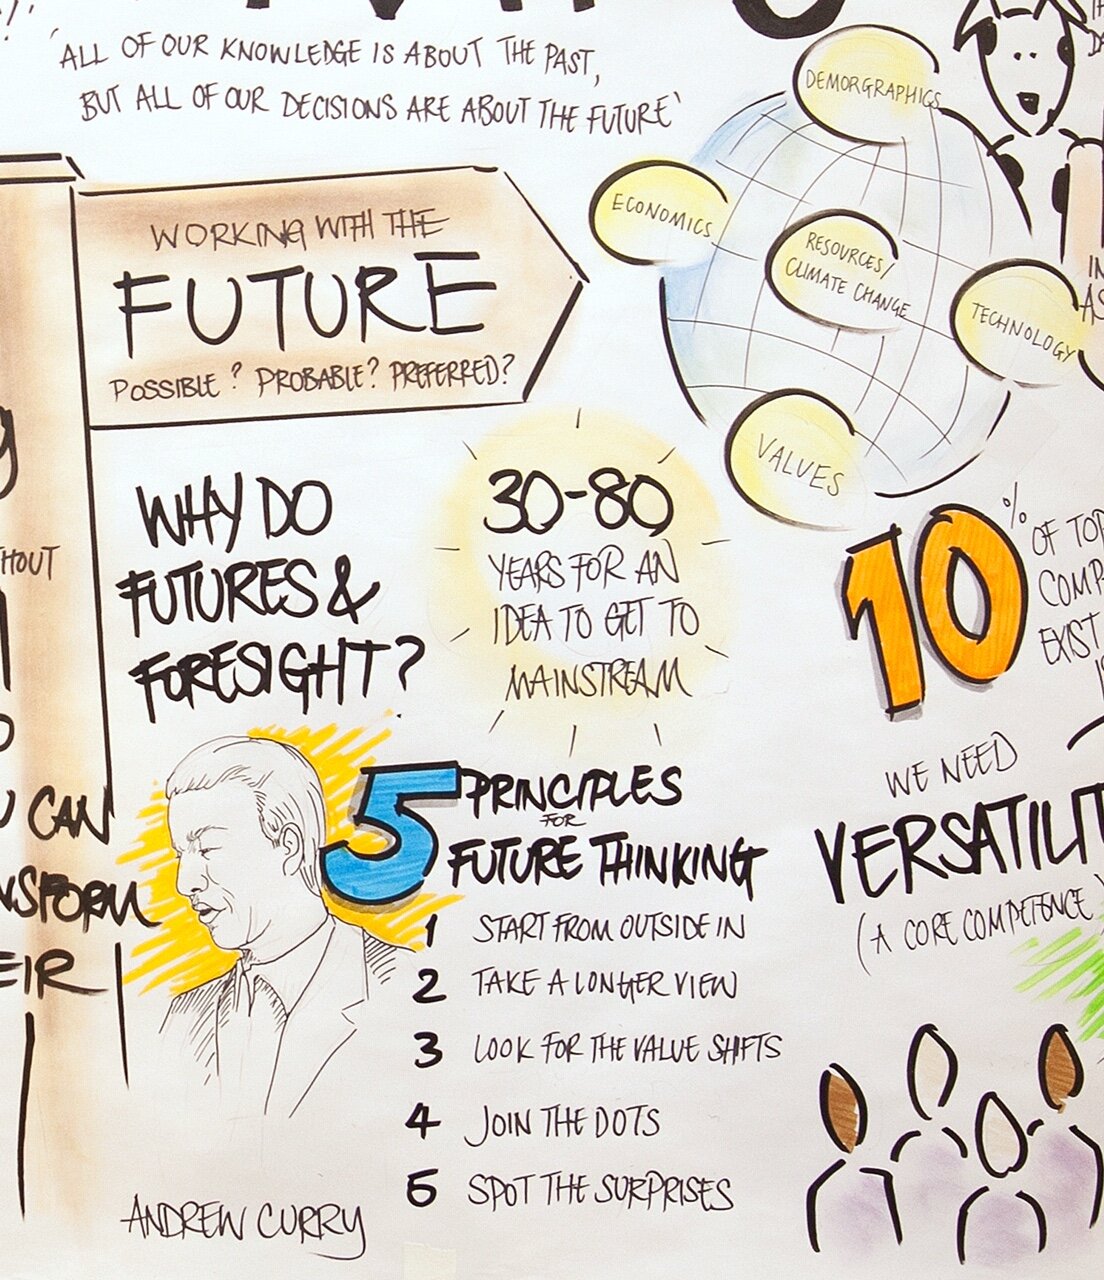 'ALL OF OUR KNOWLEDGE IS ABOUT THE PAST,
BUT ALL OF OUR DECISIONS ARE ABOUT THE FUTURE'
DEMORGRAPHICS
ECONOMICS
RESOURCES/
CLIMATE CHANGE
TECHNOLOGY
VALUES
WORKING WITH THE
FUTURE
POSSIBLE? PROBABLE? PREFERRED?
WHY DO
FUTURES &
FORESIGHT?
30-80
YEARS FOR AN
IDEA TO GET TO
MAINSTREAM
10%
OF TOP
COMP
EXIST
HOUT
U CAN
NSFORM
EIR
5 PRINCIPLES
FOR
FUTURE THINKING
1 START FROM OUTSIDE IN
2 TAKE A LONGER VIEW
3 LOOK FOR THE VALUE SHIFTS
4 JOIN THE DOTS
5 SPOT THE SURPRISES
WE NEED
VERSATILIT
(A CORE COMPETENCE)
ANDREW CURRY